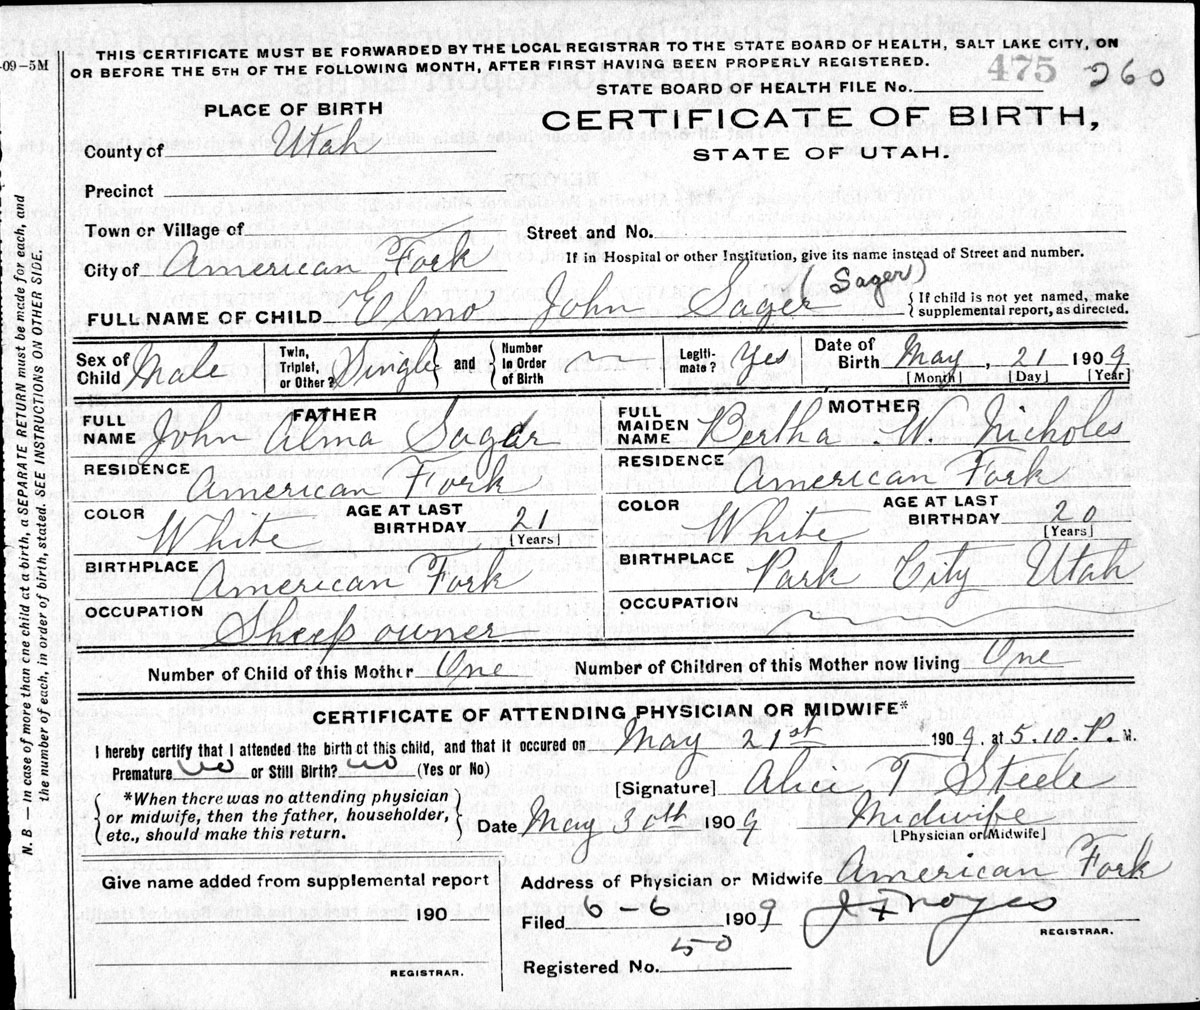 THIS CERTIFICATE MUST BE FORWARDED BY THE LOCAL REGISTRAR TO THE STATE BOARD OF HEALTH, SALT LAKE CITY, ON
-09-5M OR BEFORE THE 5TH OF THE FOLLOWING MONTH, AFTER FIRST HAVING BEEN PROPERLY REGISTERED.
475 260
STATE BOARD OF HEALTH FILE No.
PLACE OF BIRTH
CERTIFICATE OF BIRTH,
STATE OF UTAH.
County of Utah
Precinct
Town or Village of
Street and No.
City of American Fork
If in Hospital or other Institution, give its name instead of Street and number.
FULL NAME OF CHILD Elmo John Sager (Sager)
{ If child is not yet named, make
supplemental report, as directed.
Sex of Child Male
Twin, Triplet, or Other? Single } and { Number in Order of Birth
Legiti- mate? Yes
Date of Birth May, 21 1909
[Month] [Day] [Year]
FATHER
FULL NAME John Alma Sager
RESIDENCE American Fork
COLOR White
AGE AT LAST BIRTHDAY 21 [Years]
BIRTHPLACE American Fork
OCCUPATION Sheep owner
MOTHER
FULL MAIDEN NAME Bertha W. Nicholes
RESIDENCE American Fork
COLOR White
AGE AT LAST BIRTHDAY 20 [Years]
BIRTHPLACE Park City Utah
OCCUPATION
Number of Child of this Mother One
Number of Children of this Mother now living One
CERTIFICATE OF ATTENDING PHYSICIAN OR MIDWIFE*
I hereby certify that I attended the birth of this child, and that it occured on May 21st 1909, at 5.10.P. M.
Premature no or Still Birth? no (Yes or No)
[Signature] Alice T Steele
{ *When there was no attending physician
or midwife, then the father, householder,
etc., should make this return. }
Date May 30th 1909 Midwife
[Physician or Midwife]
Give name added from supplemental report
190
REGISTRAR.
Address of Physician or Midwife American Fork
Filed 6-6 1909 J F Noyes
REGISTRAR.
Registered No. 50
N. B. — In case of more than one child at a birth, a SEPARATE RETURN must be made for each, and
the number of each, in order of birth, stated. SEE INSTRUCTIONS ON OTHER SIDE.